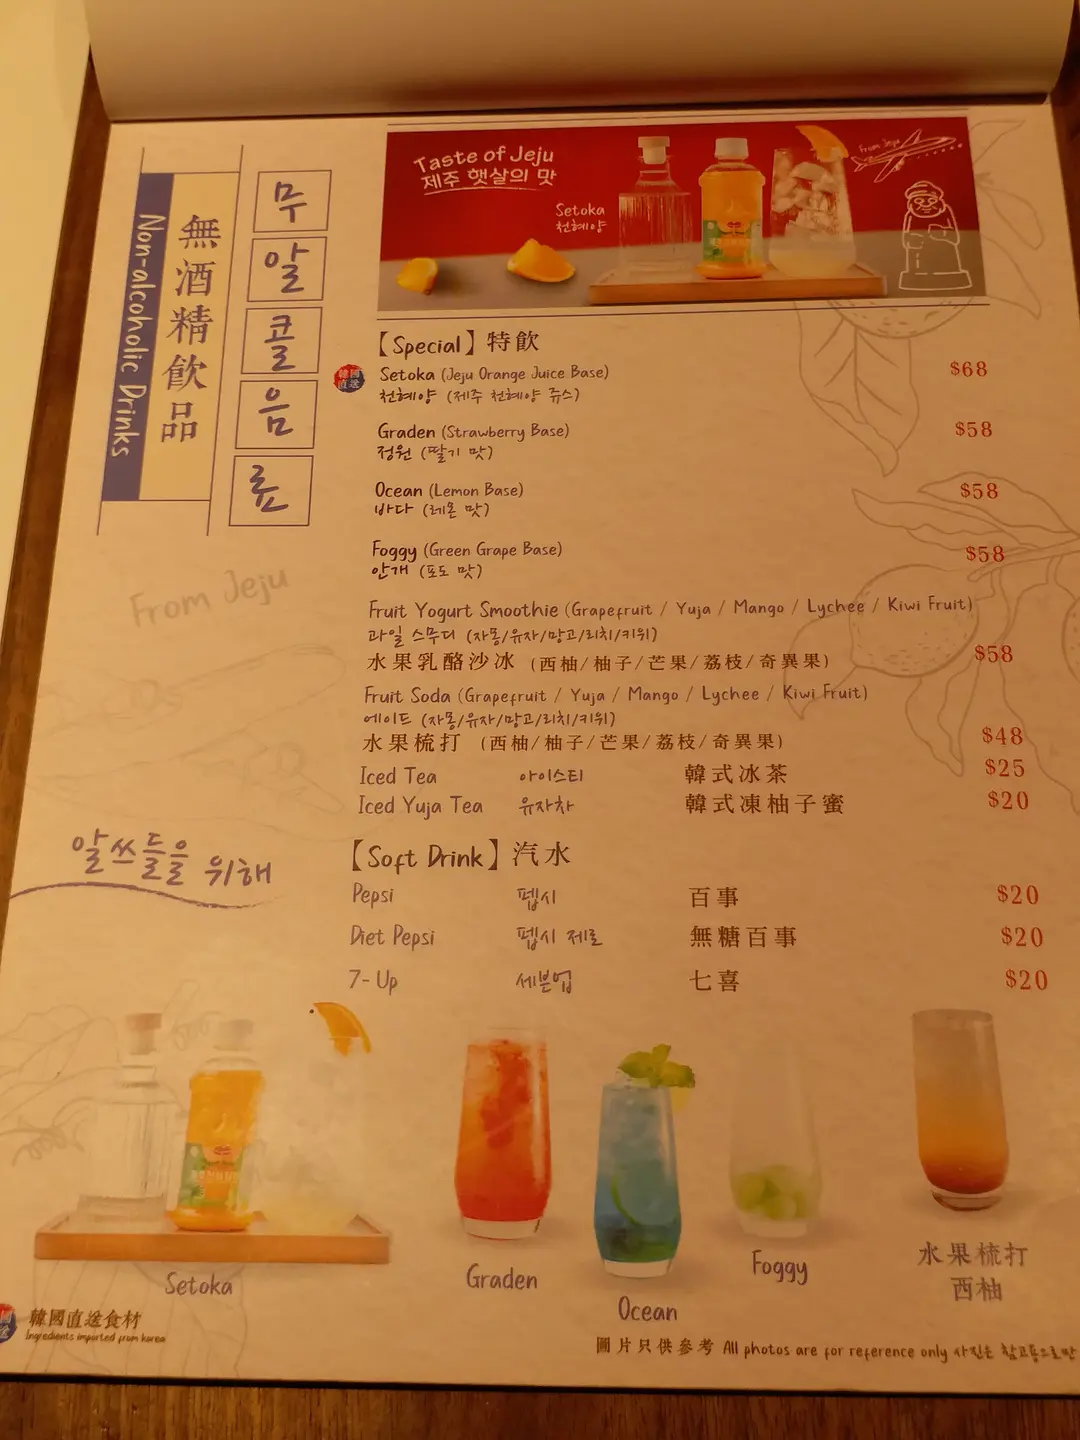 Taste of Jeju
제주 햇살의 맛
From Jeju
Setoka
천혜향
Non-alcoholic Drinks
無酒精飲品
무알콜음료
【Special】特飲
韓國直送
Setoka (Jeju Orange Juice Base) $68
천혜향 (제주 천혜향 쥬스)
Graden (Strawberry Base) $58
정원 (딸기 맛)
Ocean (Lemon Base) $58
바다 (레몬 맛)
Foggy (Green Grape Base) $58
안개 (포도 맛)
From Jeju
Fruit Yogurt Smoothie (Grapefruit / Yuja / Mango / Lychee / Kiwi Fruit)
과일 스무디 (자몽/유자/망고/리치/키위)
水果乳酪沙冰 (西柚/柚子/芒果/荔枝/奇異果) $58
Fruit Soda (Grapefruit / Yuja / Mango / Lychee / Kiwi Fruit)
에이드 (자몽/유자/망고/리치/키위)
水果梳打 (西柚/柚子/芒果/荔枝/奇異果) $48
Iced Tea 아이스티 韓式冰茶 $25
Iced Yuja Tea 유자차 韓式凍柚子蜜 $20
알쓰들을 위해
【Soft Drink】汽水
Pepsi 펩시 百事 $20
Diet Pepsi 펩시 제로 無糖百事 $20
7-Up 세븐업 七喜 $20
Setoka
Graden
Ocean
Foggy
水果梳打
西柚
韓國直送食材
Ingredients imported from korea
圖片只供參考 All photos are for reference only 사진은 참고용으로만